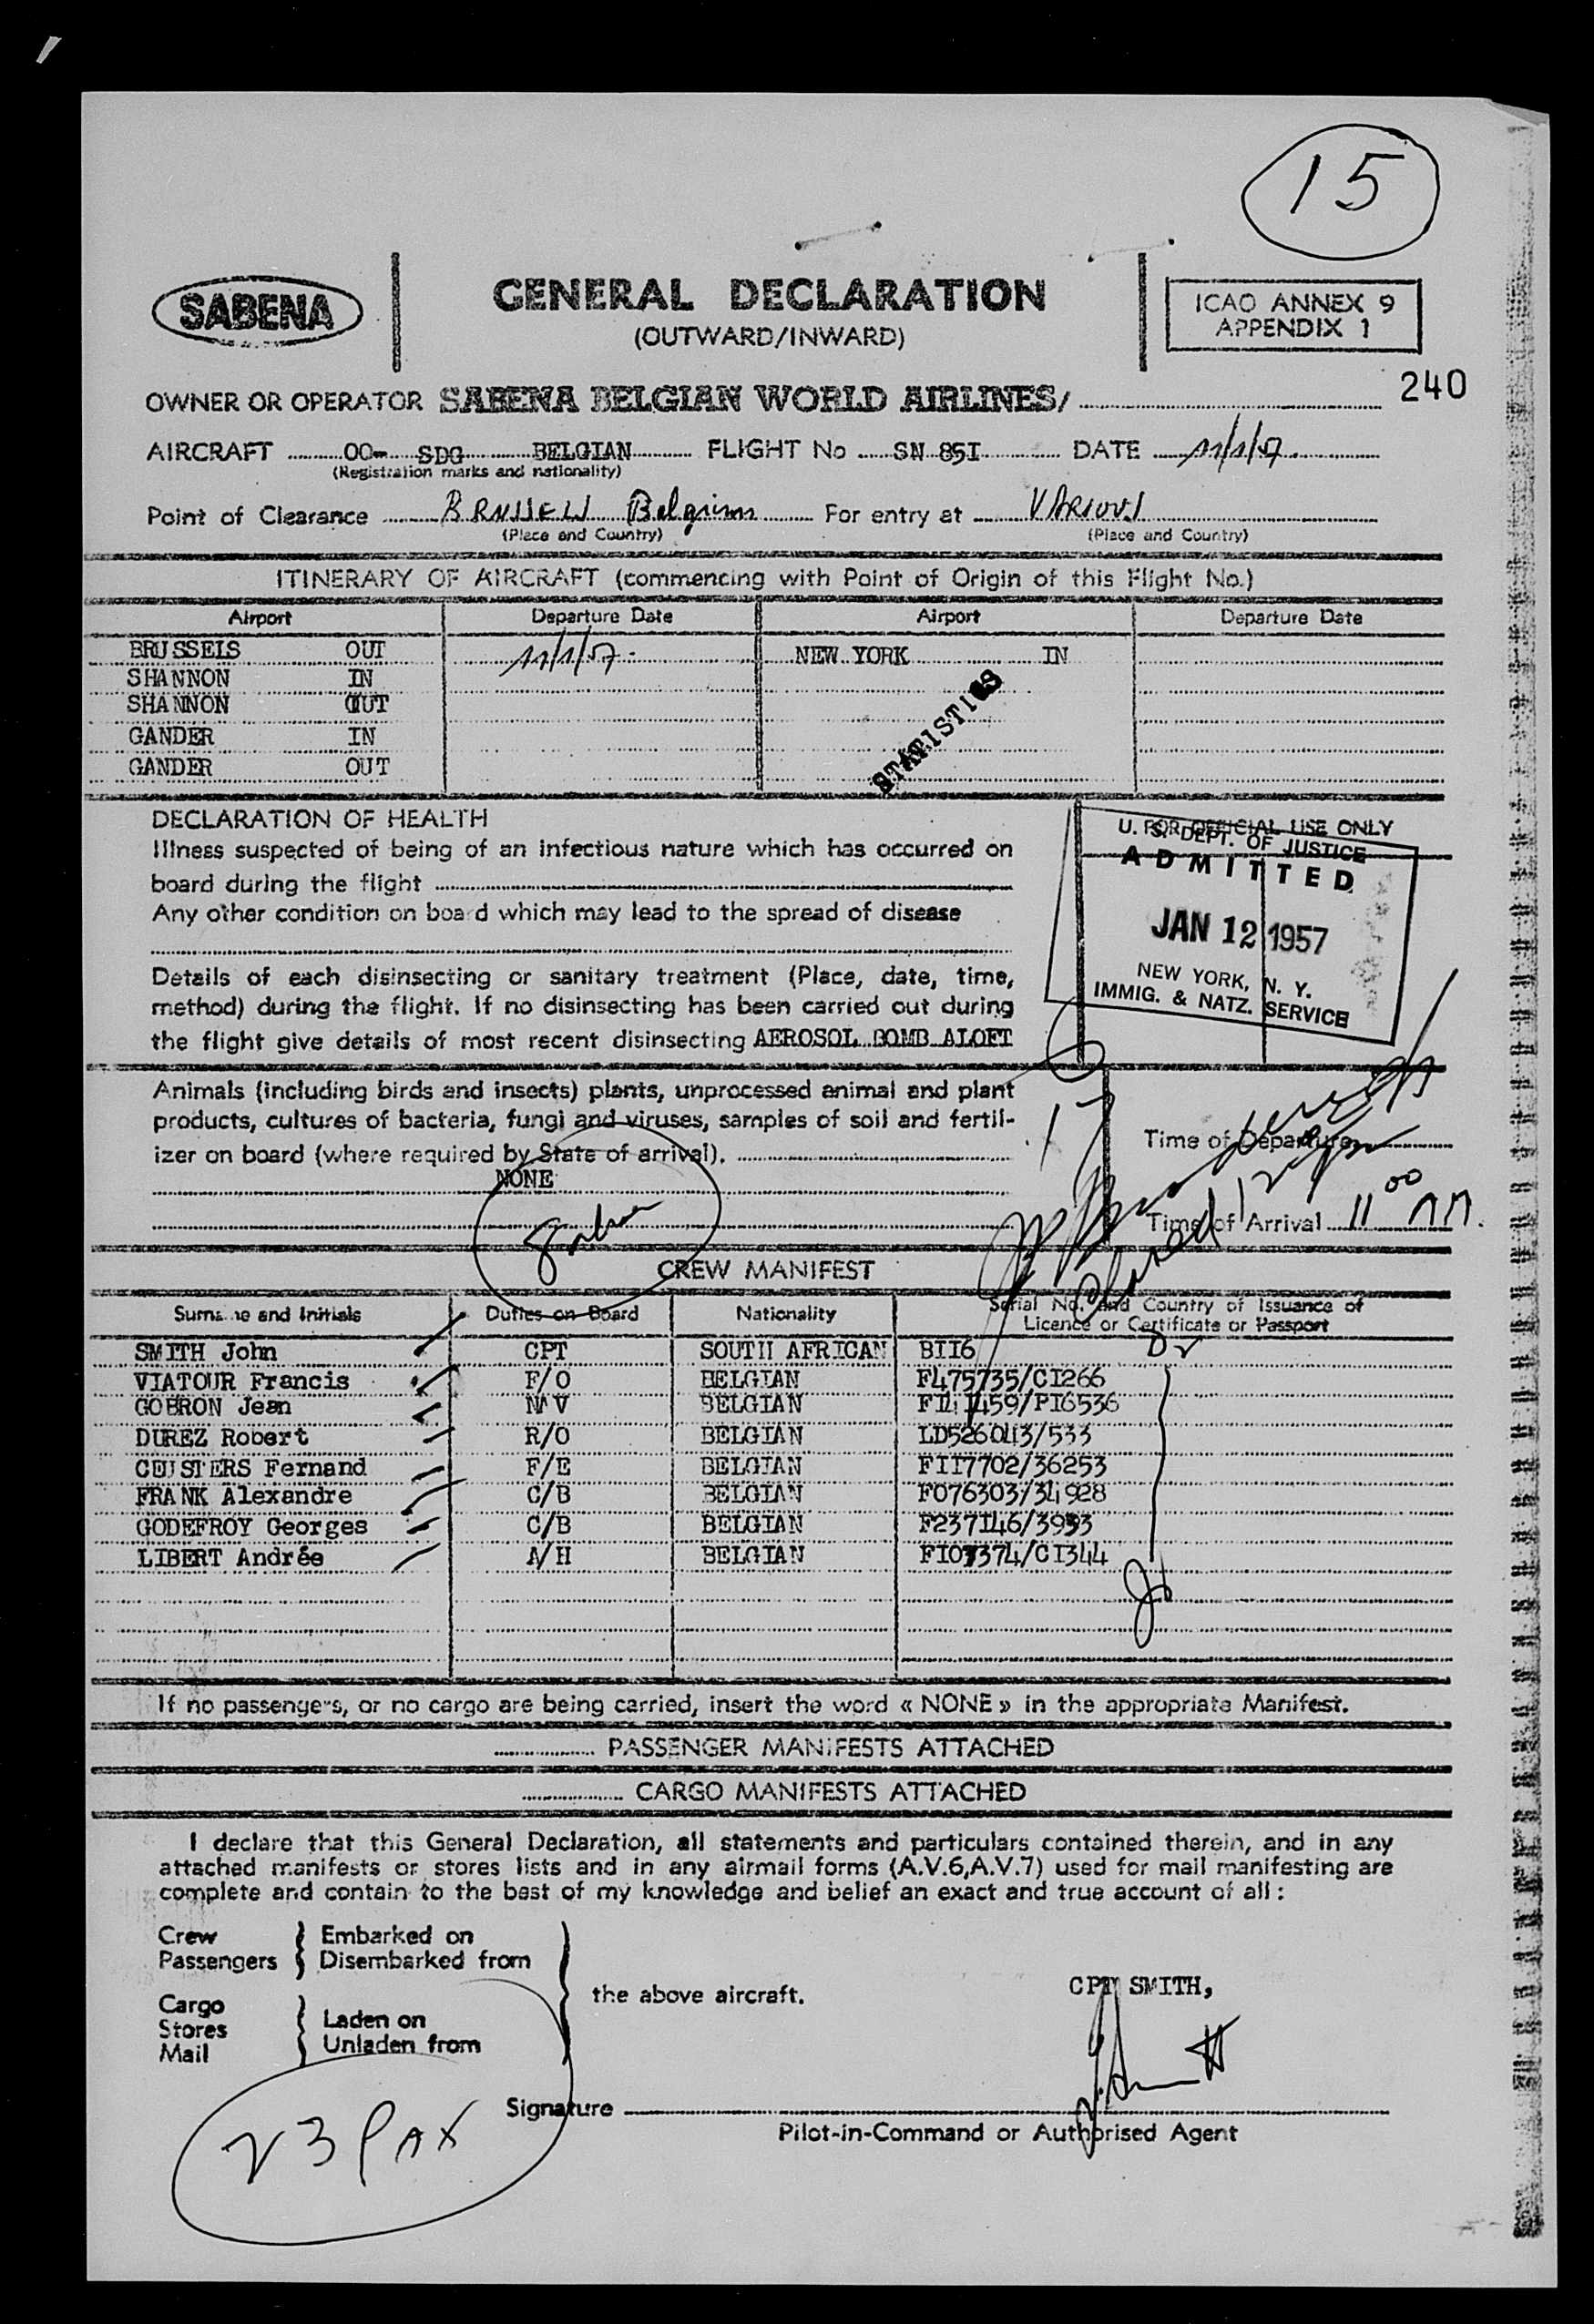 15
SABENA
GENERAL DECLARATION
(OUTWARD/INWARD)
ICAO ANNEX 9
APPENDIX 1
240
OWNER OR OPERATOR SABENA BELGIAN WORLD AIRLINES/
AIRCRAFT OO- SDG BELGIAN FLIGHT No SN 85I DATE 11/1/57
(Registration marks and nationality)
Point of Clearance BRUSSELS Belgium For entry at VARIOUS
(Place and Country) (Place and Country)
ITINERARY OF AIRCRAFT (commencing with Point of Origin of this Flight No.)
Airport Departure Date Airport Departure Date
BRUSSELS OUT 11/1/57. NEW YORK IN
SHANNON IN
SHANNON OUT
GANDER IN
GANDER OUT
STATISTICS
DECLARATION OF HEALTH
Illness suspected of being of an infectious nature which has occurred on
board during the flight
Any other condition on board which may lead to the spread of disease
Details of each disinsecting or sanitary treatment (Place, date, time,
method) during the flight. If no disinsecting has been carried out during
the flight give details of most recent disinsecting AEROSOL BOMB ALOFT
FOR OFFICIAL USE ONLY
U. S. DEPT. OF JUSTICE
ADMITTED
JAN 12 1957
NEW YORK, N. Y.
IMMIG. & NATZ. SERVICE
Animals (including birds and insects) plants, unprocessed animal and plant
products, cultures of bacteria, fungi and viruses, samples of soil and fertil-
izer on board (where required by State of arrival).
NONE
Time of Departure
Time of Arrival 11 00 AM.
CREW MANIFEST
Surname and Initials Duties on Board Nationality Serial No. and Country of Issuance of
Licence or Certificate or Passport
SMITH John CPT SOUTH AFRICAN BII6
VIATOUR Francis F/O BELGIAN F475735/CI266
GOBRON Jean NAV BELGIAN FI41459/PI6536
DUREZ Robert R/O BELGIAN LD526043/533
CEUSTERS Fernand F/E BELGIAN FII7702/36253
FRANK Alexandre C/B BELGIAN F076303/34928
GODEFROY Georges C/B BELGIAN F237I46/3953
LIBERT Andrée A/H BELGIAN FI03374/CI344
If no passengers, or no cargo are being carried, insert the word « NONE » in the appropriate Manifest.
PASSENGER MANIFESTS ATTACHED
CARGO MANIFESTS ATTACHED
I declare that this General Declaration, all statements and particulars contained therein, and in any
attached manifests or stores lists and in any airmail forms (A.V.6,A.V.7) used for mail manifesting are
complete and contain to the best of my knowledge and belief an exact and true account of all :
Crew Embarked on
Passengers Disembarked from
the above aircraft.
CPT SMITH,
Cargo
Stores Laden on
Mail Unladen from
Signature
Pilot-in-Command or Authorised Agent
23 PAX